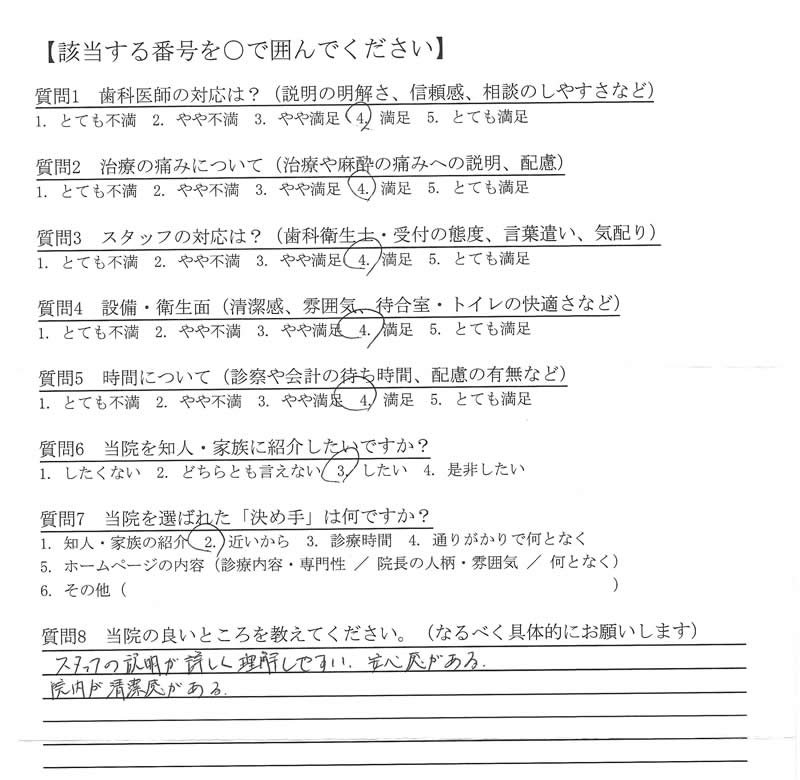 【該当する番号を○で囲んでください】
質問1　歯科医師の対応は？（説明の明解さ、信頼感、相談のしやすさなど）
1. とても不満 2. やや不満 3. やや満足 4. 満足 5. とても満足
質問2　治療の痛みについて（治療や麻酔の痛みへの説明、配慮）
1. とても不満 2. やや不満 3. やや満足 4. 満足 5. とても満足
質問3　スタッフの対応は？（歯科衛生士・受付の態度、言葉遣い、気配り）
1. とても不満 2. やや不満 3. やや満足 4. 満足 5. とても満足
質問4　設備・衛生面（清潔感、雰囲気、待合室・トイレの快適さなど）
1. とても不満 2. やや不満 3. やや満足 4. 満足 5. とても満足
質問5　時間について（診察や会計の待ち時間、配慮の有無など）
1. とても不満 2. やや不満 3. やや満足 4. 満足 5. とても満足
質問6　当院を知人・家族に紹介したいですか？
1. したくない 2. どちらとも言えない 3. したい 4. 是非したい
質問7　当院を選ばれた「決め手」は何ですか？
1. 知人・家族の紹介 2. 近いから 3. 診療時間 4. 通りがかりで何となく
5. ホームページの内容（診療内容・専門性 ／ 院長の人柄・雰囲気 ／ 何となく）
6. その他（　　　　　　　　　　　　　　　　　　　）
質問8　当院の良いところを教えてください。（なるべく具体的にお願いします）
スタッフの説明が詳しく理解しやすい. 安心感がある.
院内が清潔感がある.